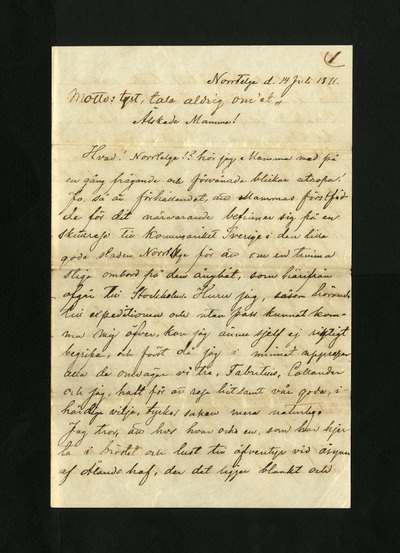 1
Norrtelge d. 14 Juli 1871.
Motto: tyst, tala aldrig om'et „
Älskade Mamma!
Hvad! Norrtelge!? hör jag Mamma med på
en gång frågande och förvånade blickar utropa!
Jo, så är förhållandet, att Mammas förstfödde
de för det närvarande befinner sig på en
till konungariket Sverige i den lilla
goda staden Norrtelge för att om en timma
stiga ombord på den ångbåt, som härifrån
afgår till Stockholm. Huru jag, såsom hörande
till expeditionen och utan pass kunnat kom-
ma mig öfver, kan jag ännu sjelf ej riktigt
begripa, och först då jag i minnet upprepar
alla de vi tre, Fabritius, Collander
och jag, haft för att resa hit samt vår goda, i-
härdiga vilja, tyckes saken mera naturlig.
Jag tror, att hos hvar och en, som har hjer-
ta i bröstet och lust till äfventyr vid åsynen
af Ålands haf, der det ligger blankt och